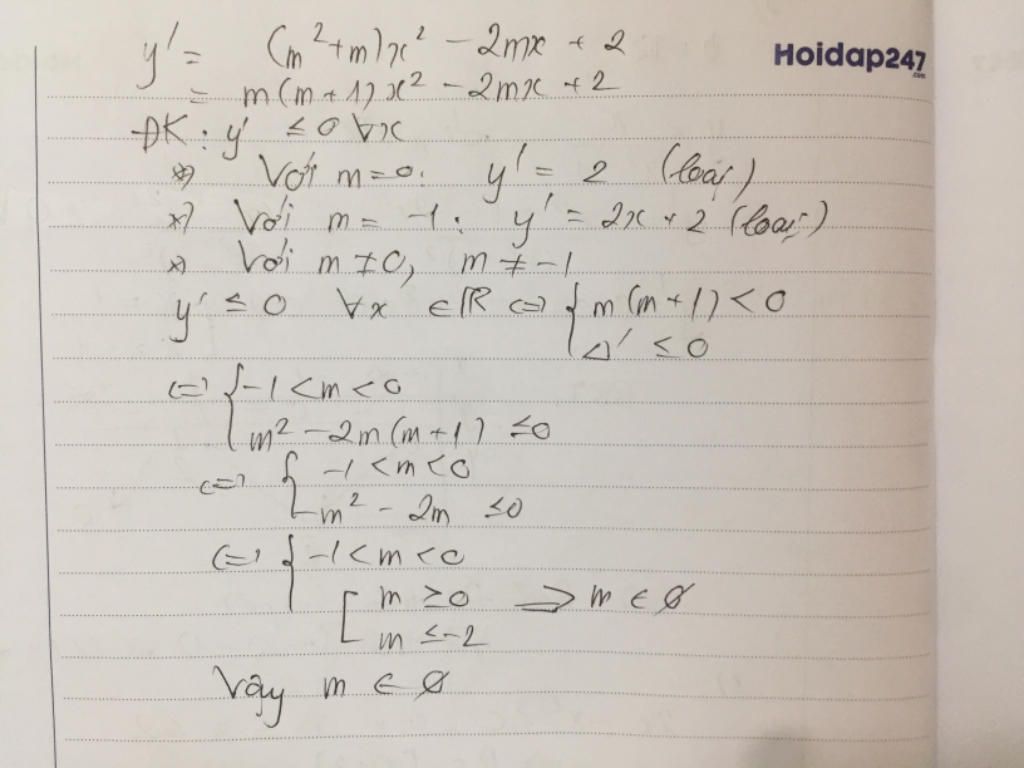 y' = (m² + m)x² - 2mx + 2
Hoidap247
.com
= m(m + 1)x² - 2mx + 2
ĐK: y' ≤ 0 ∀x
*) Với m = 0: y' = 2 (loại)
*) Với m = -1: y' = 2x + 2 (loại)
*) Với m ≠ 0, m ≠ -1
y' ≤ 0 ∀x ∈ ℝ (=) { m(m + 1) < 0
Δ' ≤ 0
(=) { -1 < m < 0
m² - 2m(m + 1) ≤ 0
(=) { -1 < m < 0
-m² - 2m ≤ 0
(=) { -1 < m < 0
[ m ≥ 0 => m ∈ ∅
m ≤ -2
Vậy m ∈ ∅